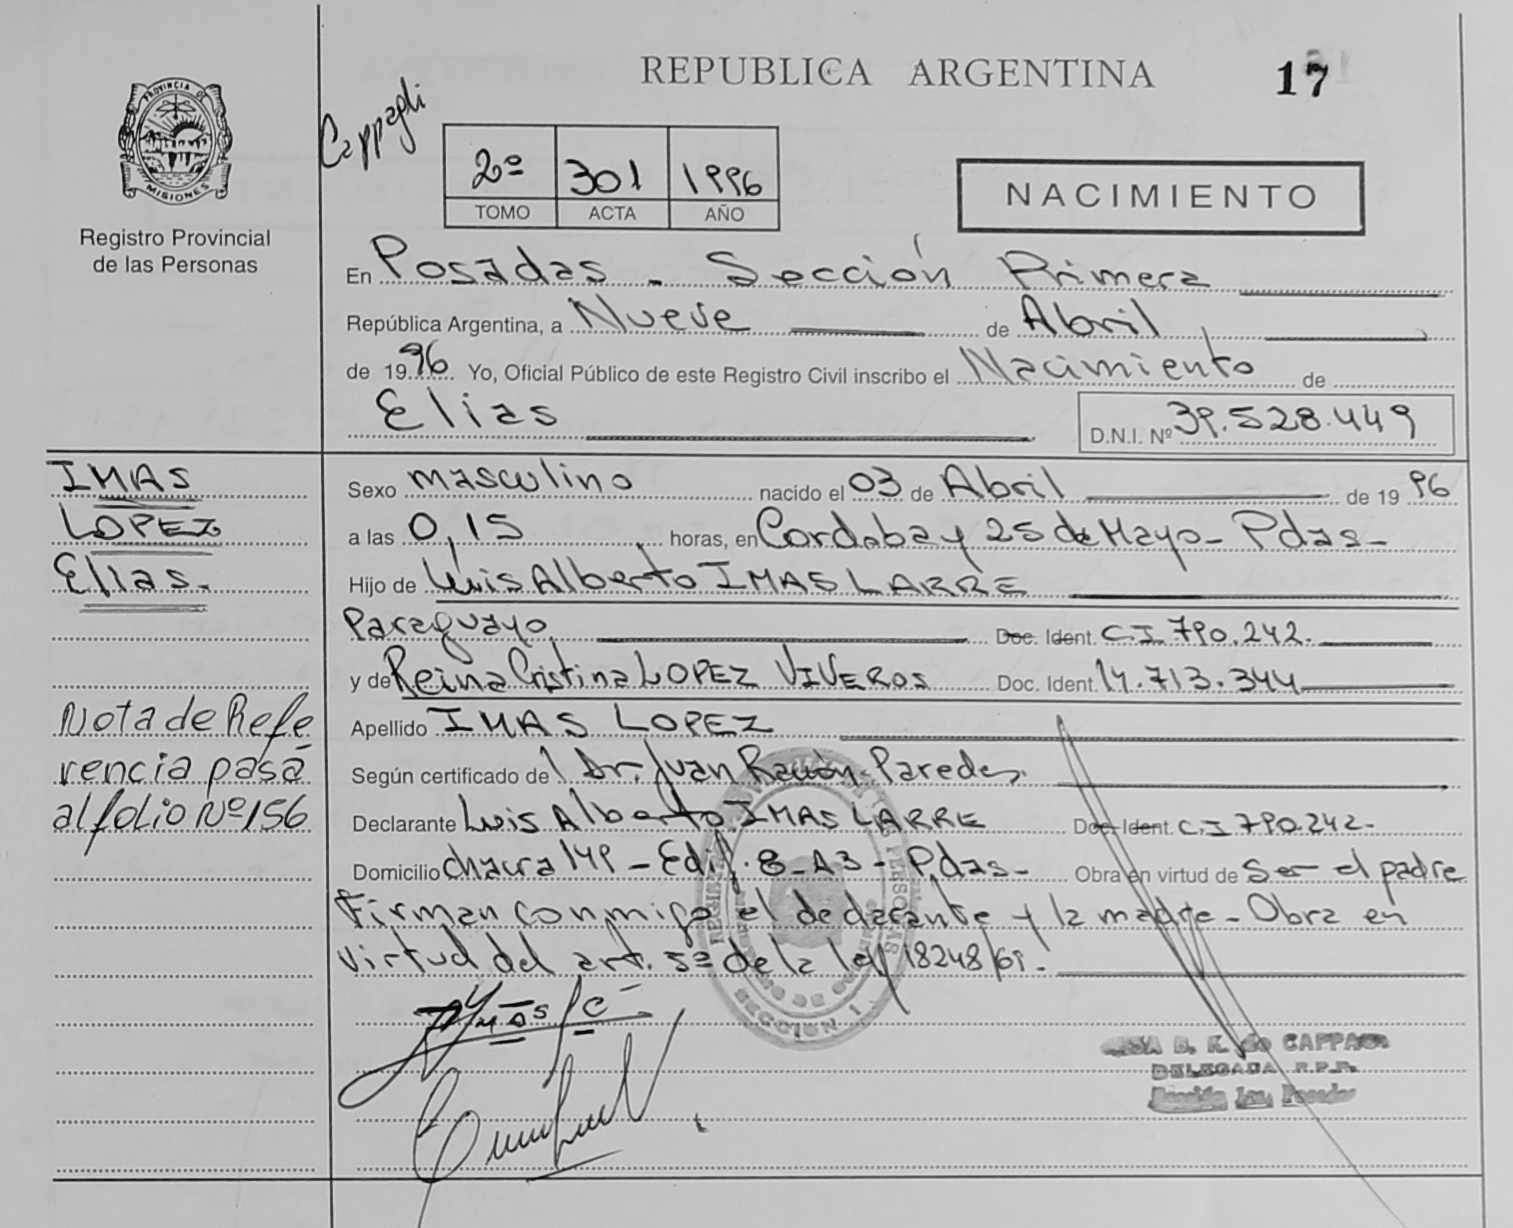 REPUBLICA ARGENTINA
17
PROVINCIA DE
MISIONES
Registro Provincial
de las Personas
Cappagli
2º 301 1996
TOMO ACTA AÑO
NACIMIENTO
En Posadas - Sección Primera
República Argentina, a Nueve de Abril
de 1996 Yo, Oficial Público de este Registro Civil inscribo el Nacimiento de
Elias
D.N.I. Nº 39.528.449
IMAS
LOPEZ
Elias.
Nota de Refe
rencia pasa
al folio Nº 156
Sexo masculino nacido el 03 de Abril de 1996
a las 0,15 horas, en Cordoba y 25 de Mayo - Pdas -
Hijo de Luis Alberto IMAS LARRE
Paraguayo Doc. Ident. C.I. 790.242.
y de Reina Cristina LOPEZ VIVEROS Doc. Ident. 14.713.344
Apellido IMAS LOPEZ
Según certificado de Dr. Juan Ramón Paredes.
Declarante Luis Alberto IMAS LARRE Doc. Ident. C.I 790.242-
Domicilio chacra 149 - Edif. 8 - A3 - Pdas - Obra en virtud de Ser el padre
Firman conmigo el declarante y la madre - Obra en
virtud del art. 5º de la ley 18248/69.
SECCION 1
B. K. de CAPPAGLI
DELEGADA R.P.P.
Sección 1ra. Posadas